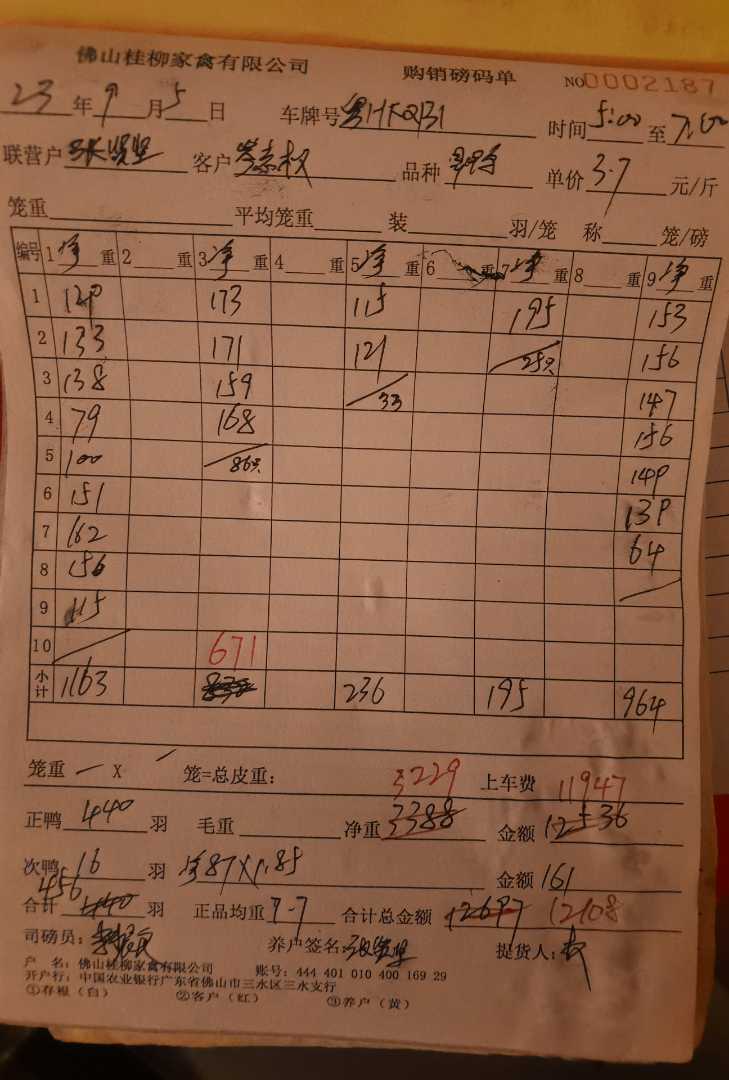 佛山桂柳家禽有限公司 购销磅码单 NO0002187
23年9月5日 车牌号粤HKQB1 时间5:00至7:00
联营户 张贤坚 客户 权 品种 单价3.7元/斤
笼重 平均笼重 装 羽/笼 称 笼/磅
编号 1净重 2 重 3净重 4 重 5净重 6 重 7净重 8 重 9净重
1 129 173 115 195 153
2 133 171 121 /25只 156
3 138 159 /33 147
4 79 168 156
5 100 /86只 149
6 151 139
7 162 64
8 156 /
9 115
10 / 671
小计 1163 236 195 964
笼重 — X / 笼=总皮重: 3229 上车费 11947
正鸭440羽 毛重 净重3388 金额12536
次鸭16羽 净87X1.85 金额161
456
合计440羽 正品均重7.7 合计总金额12697 12108
司磅员: 养户签名:张贤坚 提货人:权
户 名:佛山桂柳家禽有限公司 账号:444 401 010 400 169 29
开户行:中国农业银行广东省佛山市三水区三水支行
①存根(白) ②客户(红) ③养户(黄)